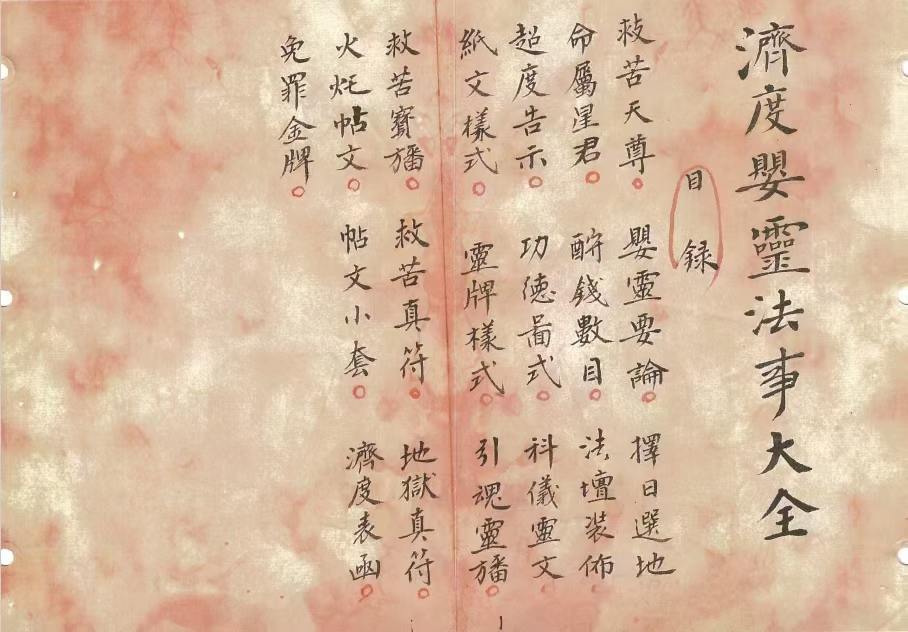 濟度嬰靈法事大全
目録
救苦天尊 嬰靈要論 擇日選地
命屬星君 酧錢數目 法壇裝佈
超度告示 功德啚式 科儀靈文
紙文樣式 靈牌樣式 引魂靈旛
救苦寶旛 救苦真符 地獄真符
火炬帖文 帖文小套 濟度表函
免罪金牌